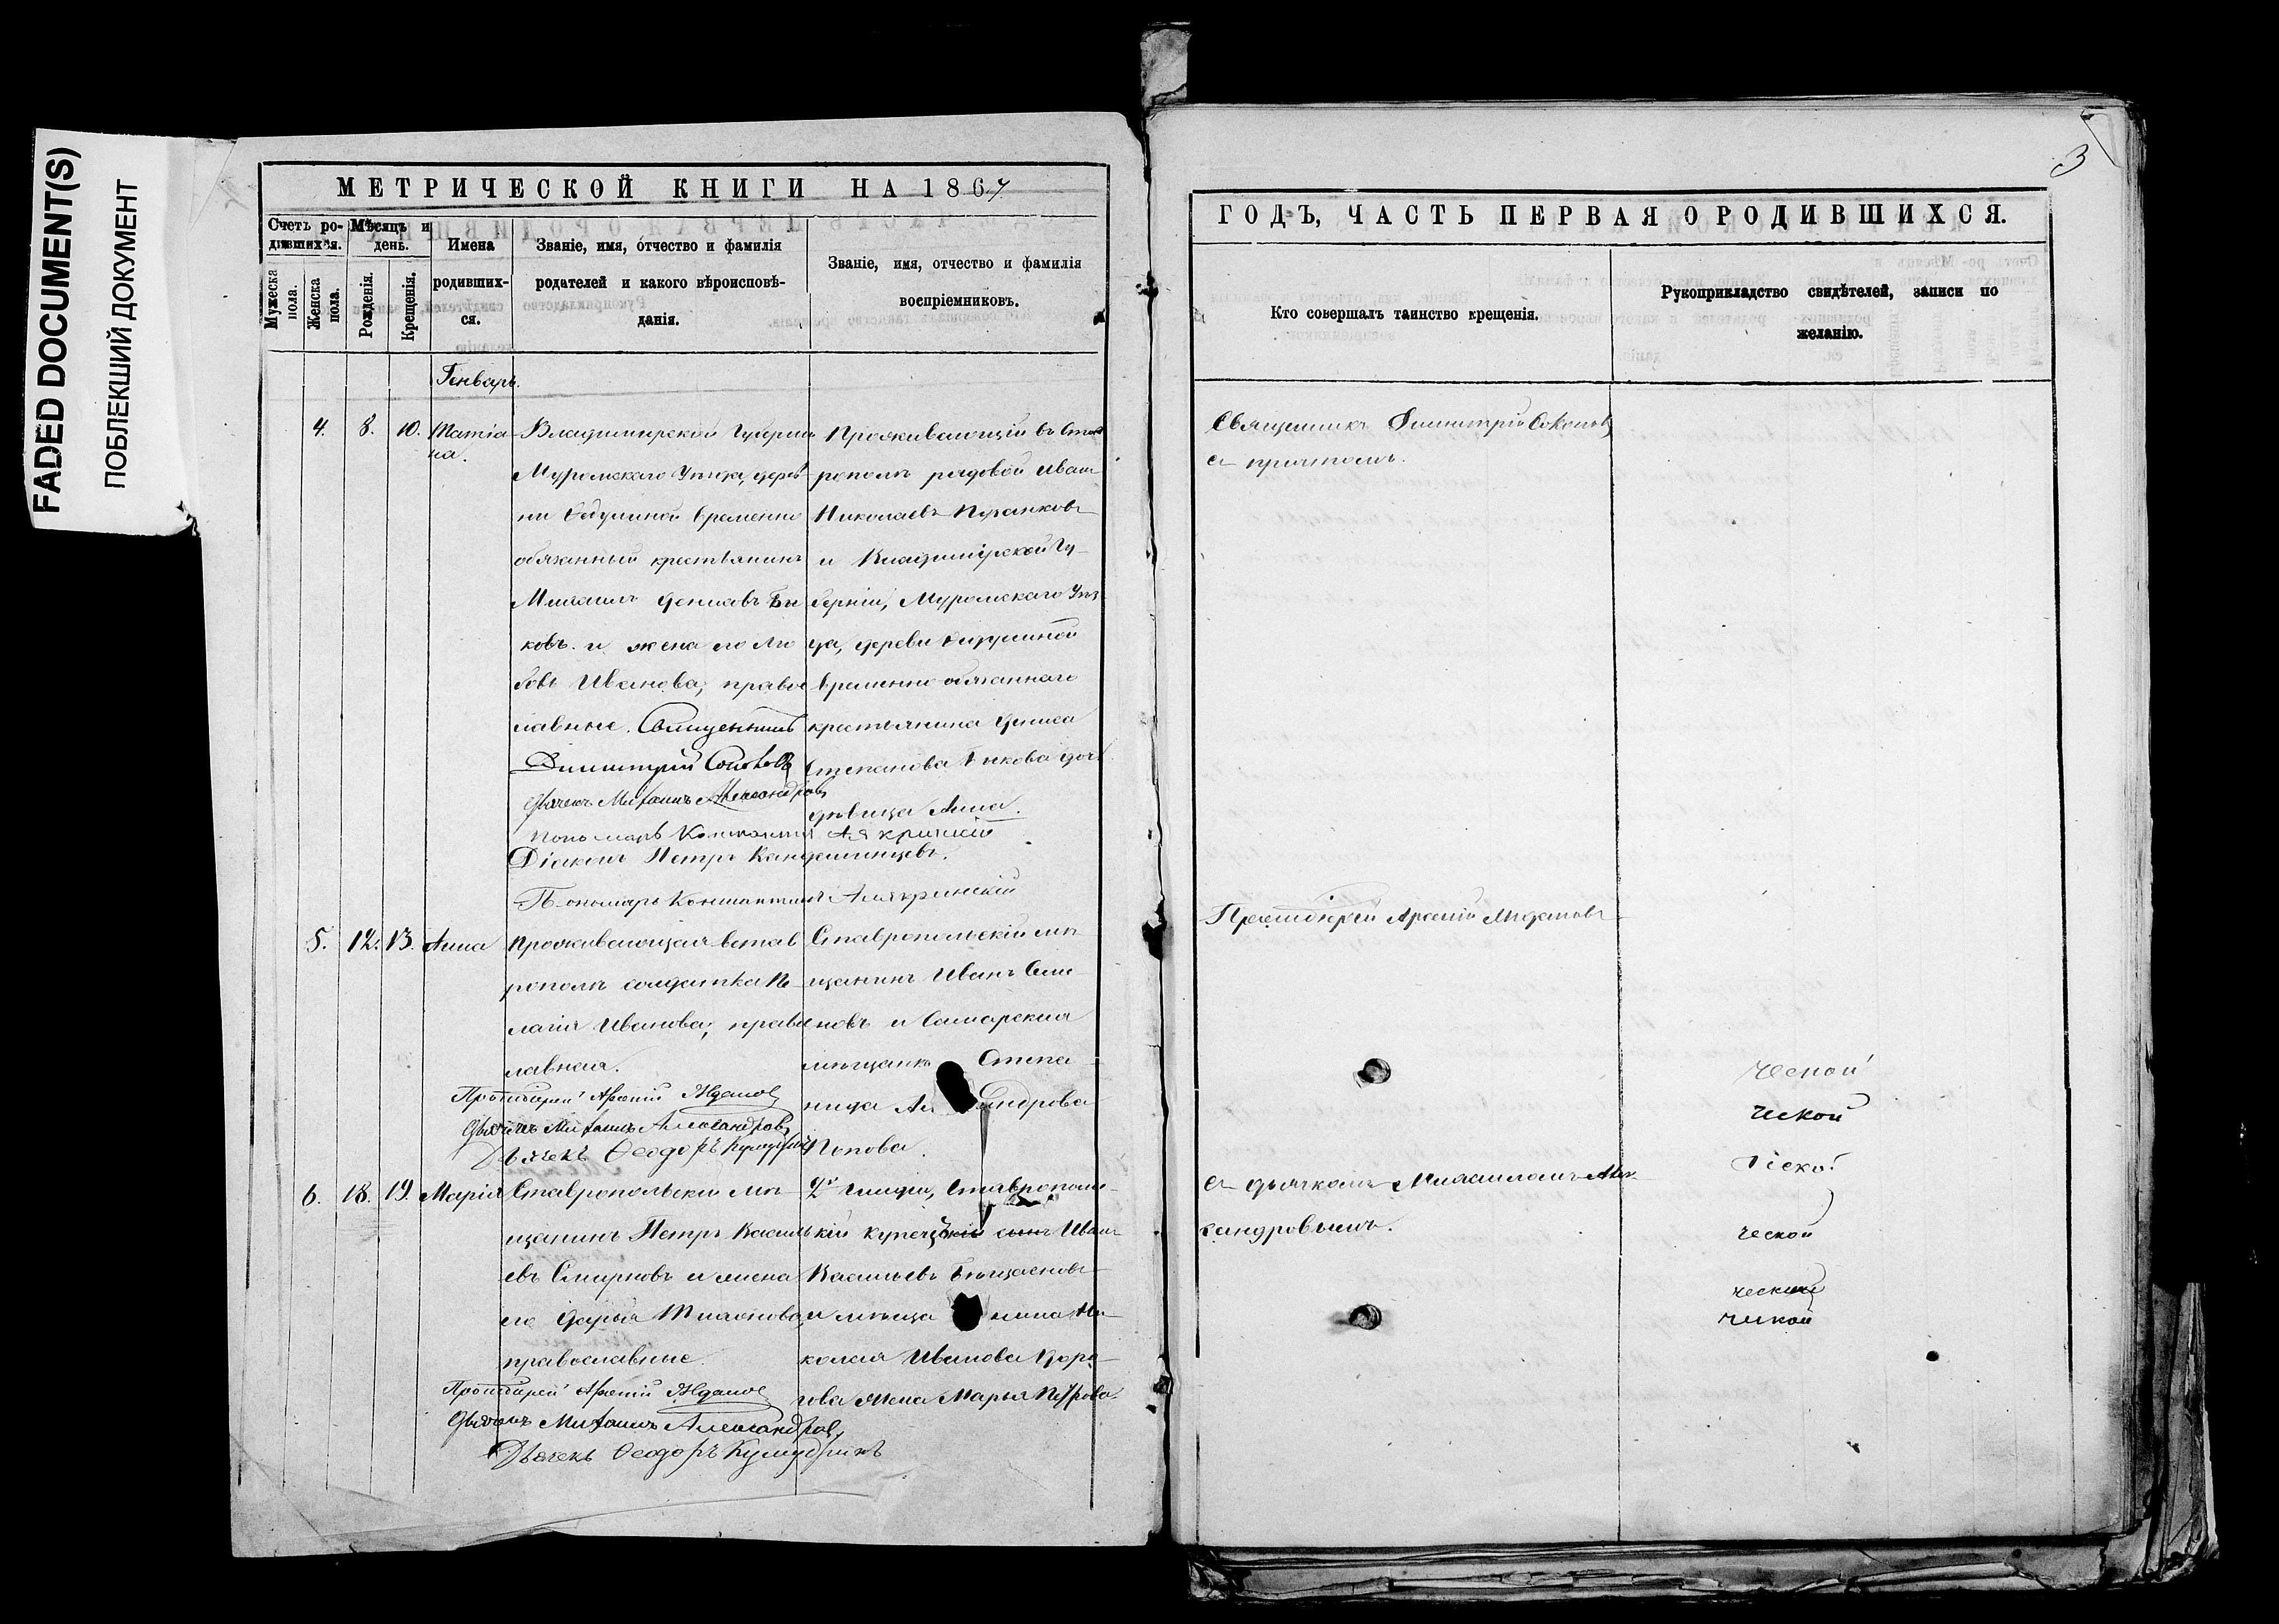 FADED DOCUMENT(S)
ПОБЛЕКШИЙ ДОКУМЕНТ
МЕТРИЧЕСКОЙ КНИГИ НА 1867
Счетъ ро-
дившихся.
Мѣсяцъ и
день.
Мужеска
пола.
Женска
пола.
Рожденія.
Крещенія.
Имена
родивших-
ся.
Званіе, имя, отчество и фамилія
родителей и какого вѣроисповѣ-
данія.
Званіе, имя, отчество и фамилія
воспріемниковъ.
Генварь.
4. 8. 10. Татіа-
на.
Владимирской Губерніи
Муромскаго Уѣзда, дерев
ни временно
обязанный крестьянинъ
Михаилъ Денисовъ Бы
ковъ. и жена его Лю
бовь Иванова; правос
лавные. Священникъ
Димитрій Соколовъ
Дьячекъ Михаилъ Александровъ
пономарь Константинъ
Діаконъ Петръ
Пономарь Константинъ
Проживающій въ Став
рополѣ рядовой Иванъ
Николаевъ
и Владимірской Гу-
берніи, Муромскаго Уѣз
да, дереви
временно обязаннаго
крестьянина Дениса
Степанова Быкова дочь
дѣвица Анна.
5. 12. 13. Анна
Проживающая въ Став
рополѣ солдатка Пе-
лагія Иванова; правос
лавная.
Протоіерей Арсеній Ждановъ
Дьячекъ Михаилъ Александровъ
Дьячекъ Ѳеодоръ
Ставропольскій мѣ-
щанинъ Иванъ Сем
новъ и Самарская
мѣщанка Степа-
нида Ал андрова
Попова.
6. 18. 19. Марія
Ставропольскій мѣ-
щанинъ Петръ Василь
евъ Смирновъ и жена
его Дарья Тихонова,
православные.
Протоіерей Арсеній Ждановъ
Дьячекъ Михаилъ Александровъ
Дьячекъ Ѳеодоръ
2й гильдіи, Ставрополь-
кій купецъ сынъ Иванъ
Васильевъ
и мѣща нина Ни-
колая Иванова
гова жена Марья Петрова.
3
ГОДЪ, ЧАСТЬ ПЕРВАЯ О РОДИВШИХСЯ.
Кто совершалъ таинство крещенія.
Рукоприкладство свидѣтелей, записи по
желанію.
Священникъ Димитрій Соколовъ
съ причтомъ.
Протоіерей Арсеній Ждановъ
съ дьячкомъ Михаиломъ Алек-
сандровымъ.
ческой
ческой
ческой
ческой